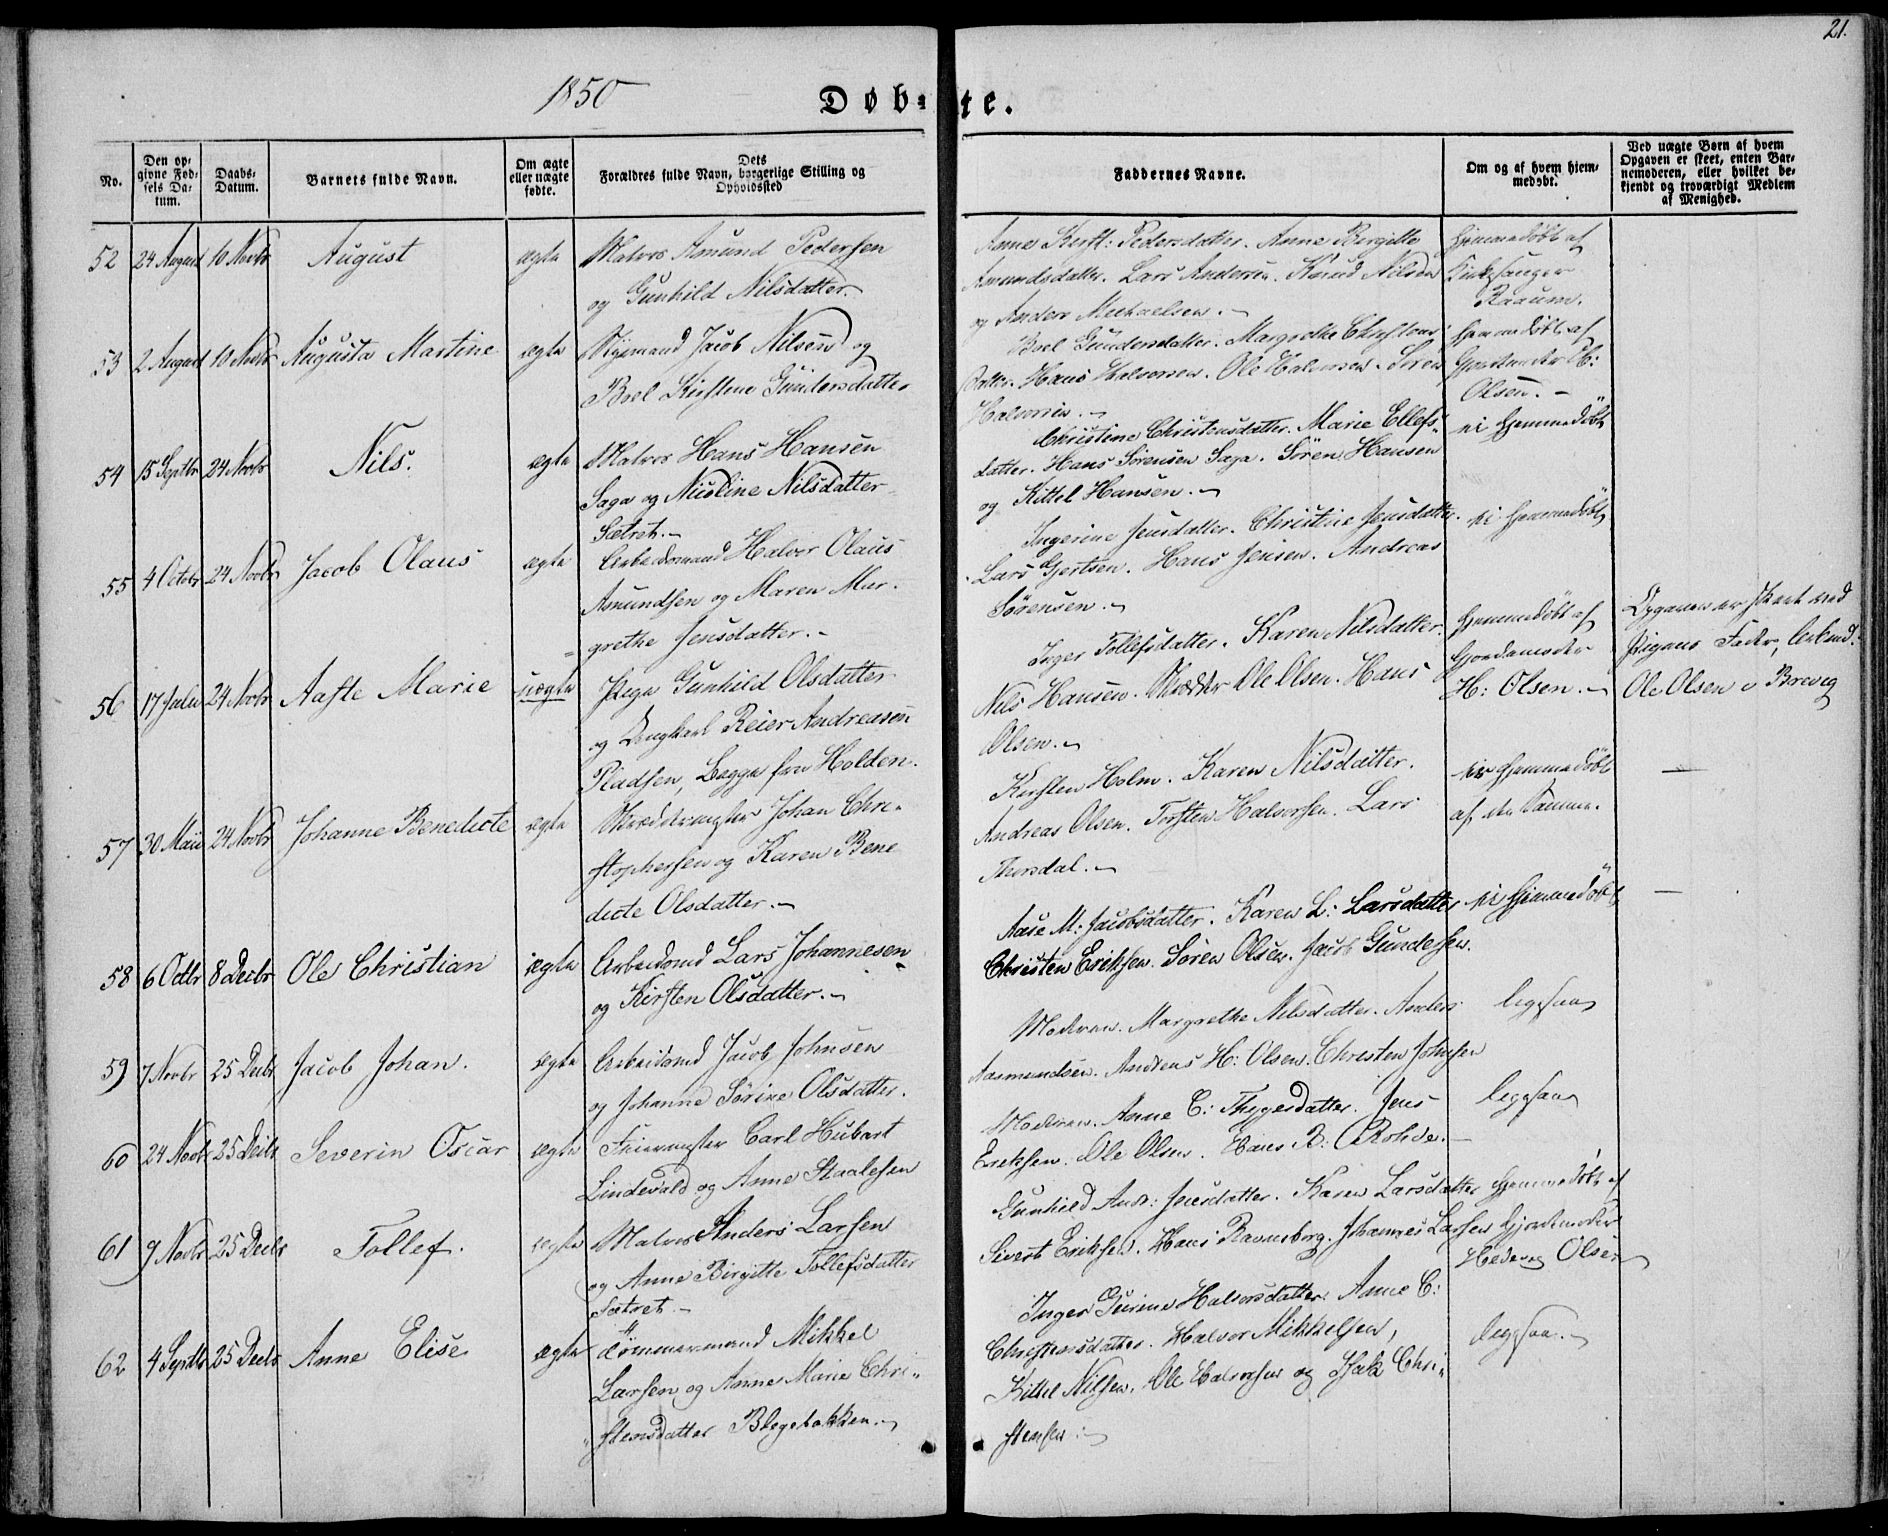 21.
1850
Døb-te.
No.
Den op-
givne Fød-
sels Da-
tum.
Daabs-
Datum.
Barnets fulde Navn.
Om ægte
eller uægte
fødte.
Dets
Forældres fulde Navn, borgerlige Stilling og
Opholdssted
Faddernes Navne.
Om og af hvem hjem-
medøbt.
Ved uægte Børn af hvem
Opgaven er skeet, enten Bar-
nemoderen, eller hvilket be-
kjendt og troværdigt Medlem
af Menighed.
52 24 August 10 Novbr August ægte Matros Amund Pedersen
og Gunhild Nilsdatter.
Anne Kirst: Pedersdatter. Anne Birgitte
Amundsdatter. Lars Andersen. Knud Nilsen
og Anders Michaelsen.
Hjemmedøbt af
Kirkesanger
Raaum.
53 2 August 10 Novbr Augusta Martine ægte Styrmand Jacob Nilsen og
Boel Kirstene Gundersdatter
Boel Gundersdatter. Margrethe Christens
datter. Hans Halvorsen. Ole Halvorsen. Søren
Halvorsen.
Hjemmedøbt af
Gjordemoder H:
Olsen.
54 15 Septbr 24 Novbr Nils. ægte Matros Hans Hansen
Saga og Nicoline Nilsdatter
Sætret.
Christine Christensdatter. Marie Ellefs-
datter. Hans Sørensen Saga. Søren Hansen
og Kittel Hansen.
ei hjemmedøbt
55 4 Octobr 24 Novbr Jacob Olaus ægte Arbeidsmand Halvor Olaus
Asmundsen og Maren Mar-
grethe Jensdatter.
Ingerine Jensdatter. Christine Jensdatter.
Lars Gjertsen. Hans Jensen. Andreas
Sørensen.
ei hjemmedøbt
56 17 24 Novbr Aaste Marie uægte Pige Gunhild Olsdatter
og Ungkarl Reier Andreasen
Pladsen, begge fra Holden.
Inger Tollefsdatter. Karen Nilsdatter.
Nils Hansen. Skrædder Ole Olsen. Hans
Olsen.
Hjemmedøbt af
Gjordemoder
H: Olsen.
Opgaven er skeet ved
Pigens Fader, Arbmd.
Ole Olsen i Brevig
57 30 Mai 24 Novbr Johanne Benedicte ægte Skræddermester Johan Chri-
stophersen og Karen Bene
dicte Olsdatter.
Kirsten Holm. Karen Nilsdatter.
Andreas Olsen. Torsten Halvorsen. Lars
Thorsdal.
hjemmedøbt
af den Samme.
58 6 Octbr 8 Decbr Ole Christian ægte Arbeidsmd Lars Johannesen
og Kirsten Olsdatter.
Aase M: Jacobsdatter. Karen L: Larsdatter
Christen Eriksen. Søren Olsen. Jacob Gundersen.
ei hjemmedøbt
59 7 Novbr 25 Decbr Jacob Johan. ægte Arbeidsmd Jacob Johnsen
og Johanne Sørine Olsdatter.
Moderen. Margrethe Nilsdatter. Anders
Aasmundsen. Andreas H: Olsen. Christen Johnsen
ligesaa
60 24 Novbr 25 Decbr Severin Oscar ægte Feiermester Carl Hubert
Lindevald og Anne Staalesen
Moderen. Anne C: Thygersdatter. Jens
Eriksen. Ole Olsen. Hans R: Rohde.
ligesaa
61 9 Novbr 25 Decbr Tollef. ægte Matros Anders Larsen
og Anne Birgitte Tollefsdatter
Sætret.
Gunhild Andr: Jensdatter. Karen Larsdatter
Sivert Eriksen. Hans Ravnsborg. Johannes Larsen
Hjemmedøbt af
Gjordemoder
Hedevig Olsen
62 4 Septbr 25 Decbr Anne Elise ægte Tømmermand Mikkel
Larsen og Anne Marie Chri-
stensdatter Blegebakken.
Inger Gurine Halvorsdatter. Anne C:
Christensdatter. Halvor Mikkelsen,
Kittel Nilsen. Ole Halvorsen og Isak Chri-
stensen.
ligesaa.